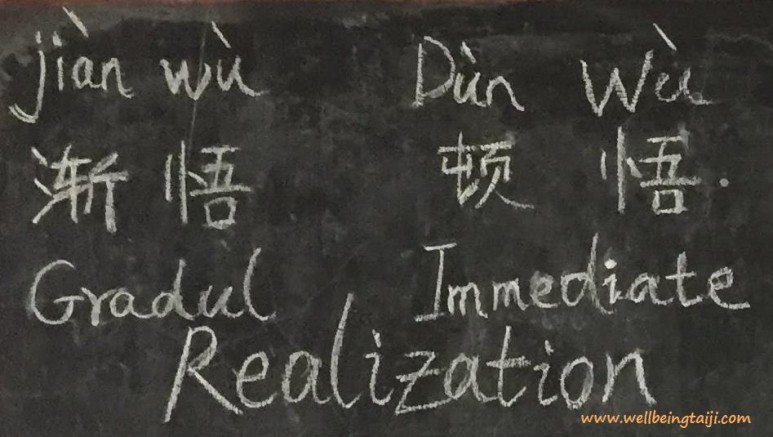 jiàn wù Dùn Wù
渐悟 顿悟.
Gradul Immediate
Realization
www.wellbeingtaiji.com